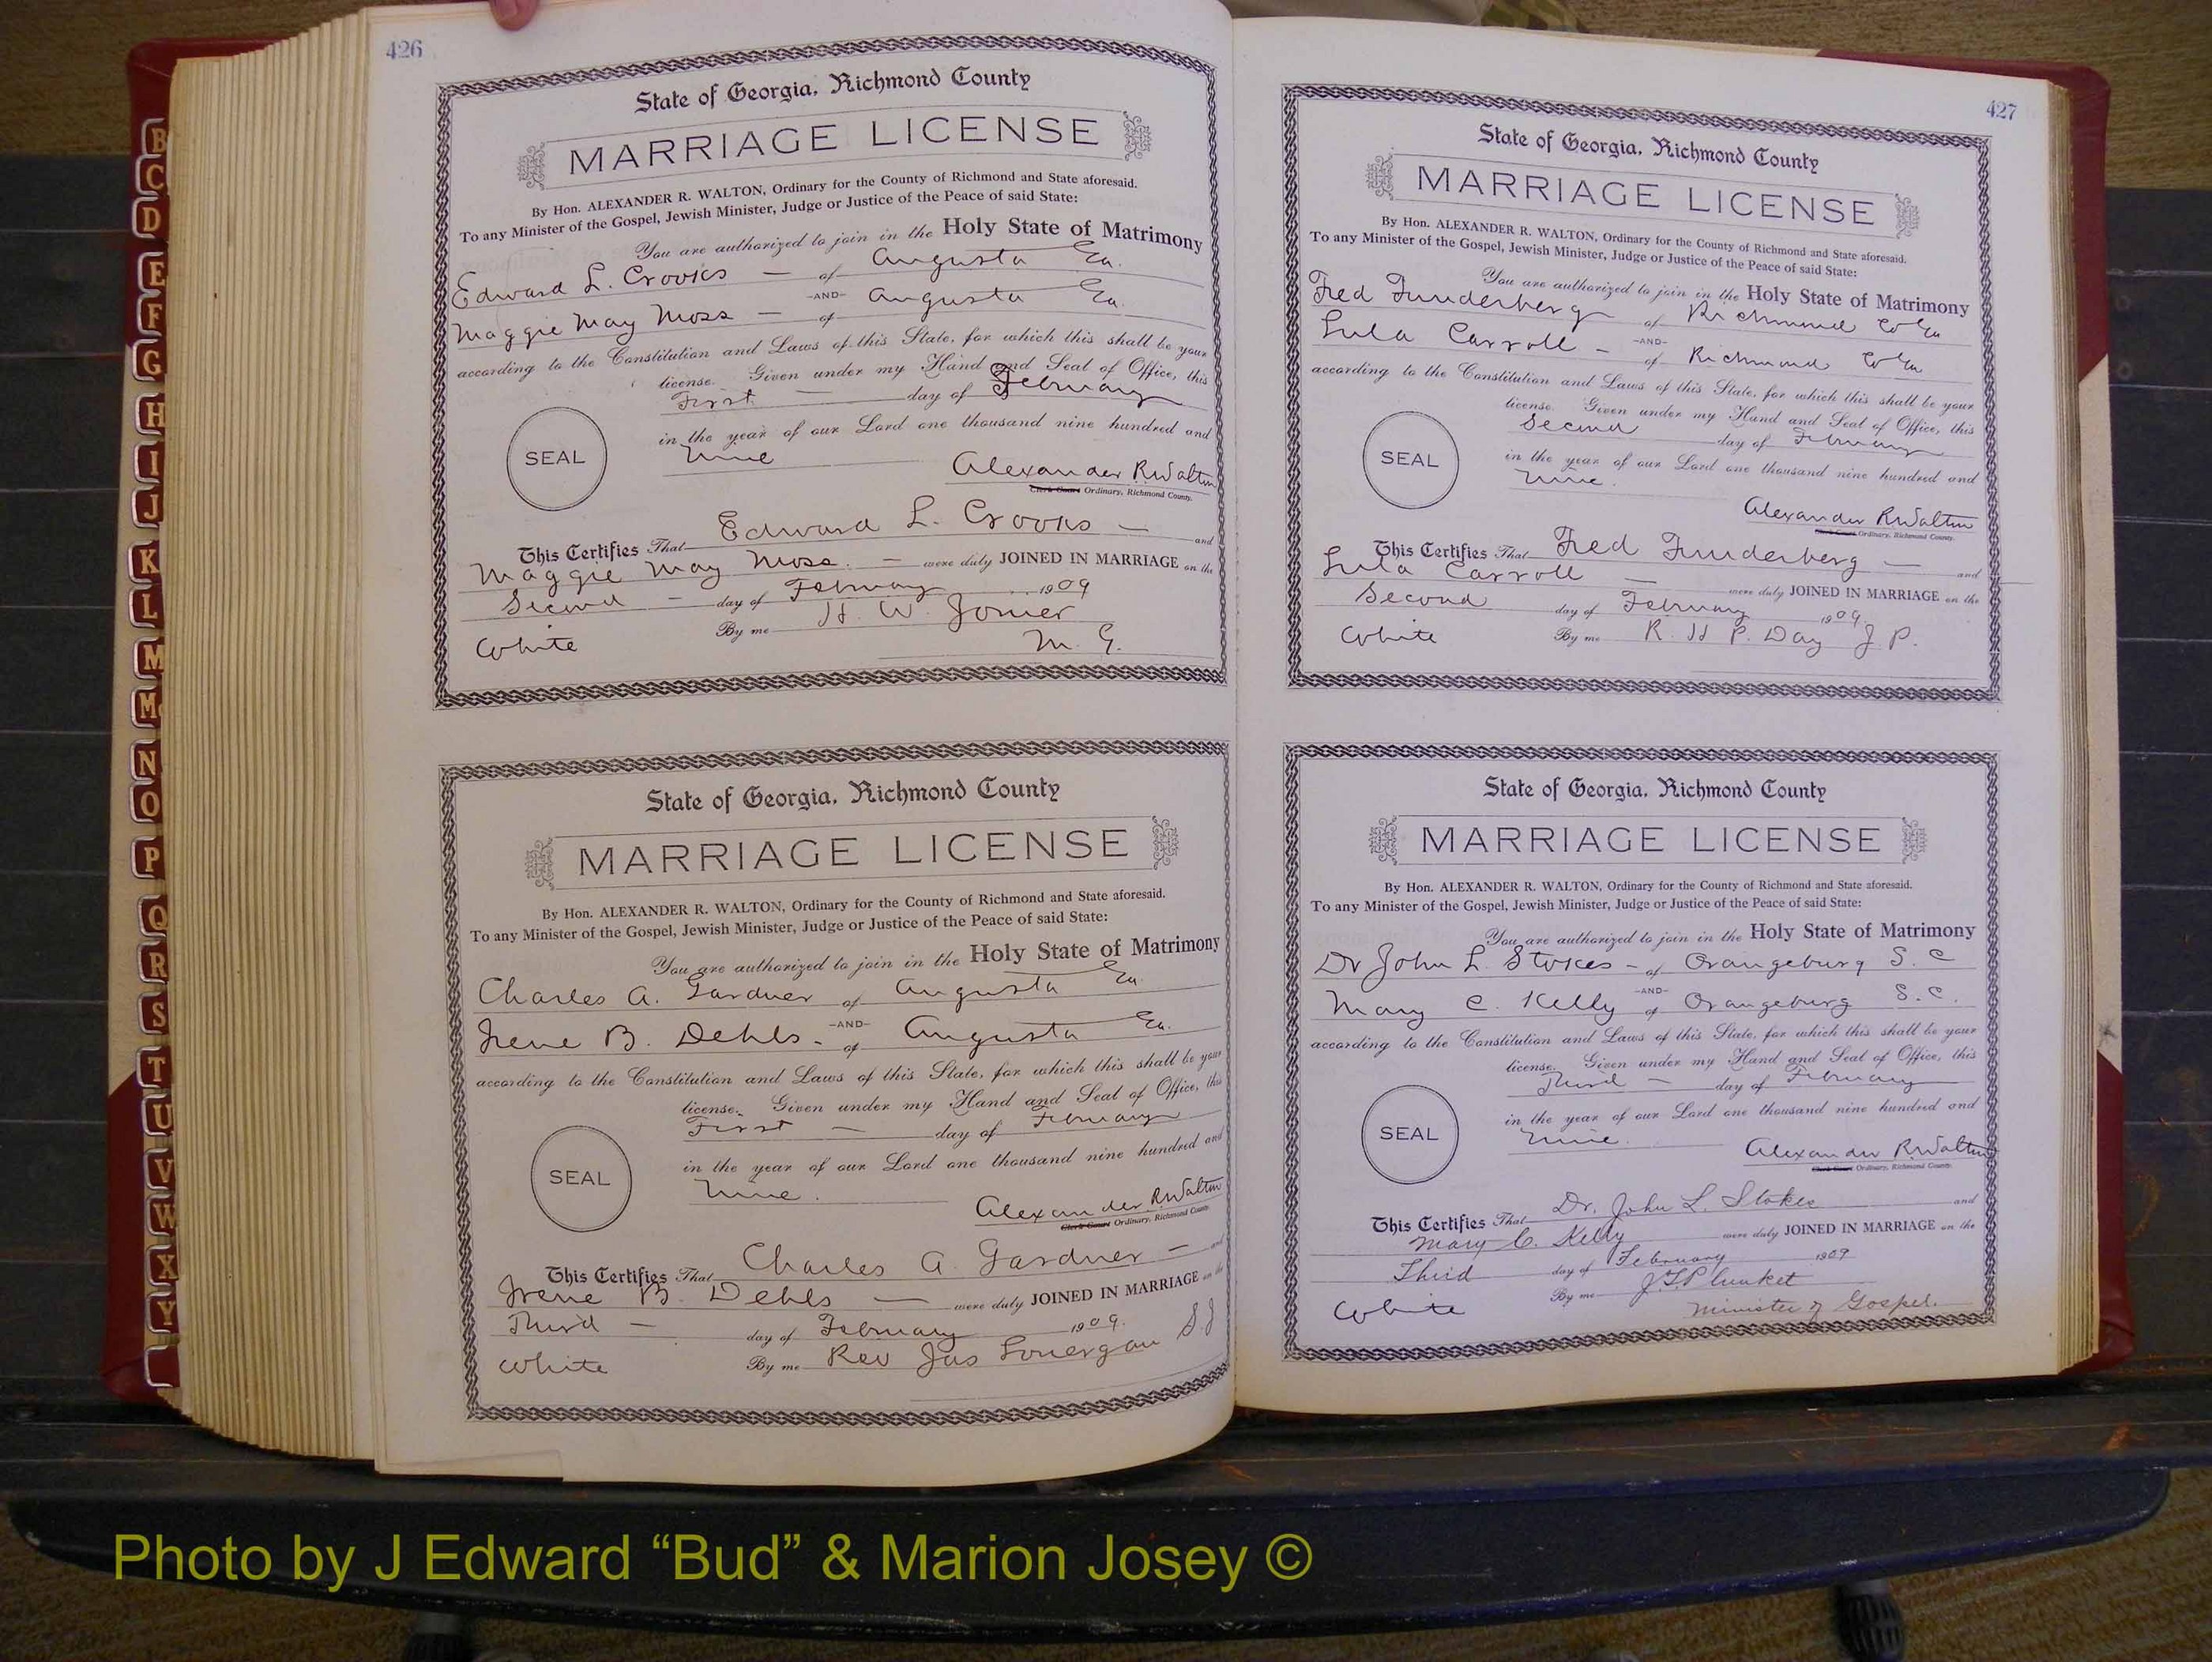 426
State of Georgia, Richmond County
MARRIAGE LICENSE
By Hon. ALEXANDER R. WALTON, Ordinary for the County of Richmond and State aforesaid.
To any Minister of the Gospel, Jewish Minister, Judge or Justice of the Peace of said State:
You are authorized to join in the Holy State of Matrimony
Edward L. Crooks — of Augusta Ga.
-AND-
Maggie May Moss — of Augusta Ga.
according to the Constitution and Laws of this State, for which this shall be your
license. Given under my Hand and Seal of Office, this
First — day of February
in the year of our Lord one thousand nine hundred and
nine
SEAL
Alexander R Walton
Clerk Court Ordinary, Richmond County.
This Certifies That Edward L. Crooks — and
Maggie May Moss. — were duly JOINED IN MARRIAGE on the
Second — day of February 1909
By me H. W. Joiner
White M. G.
State of Georgia, Richmond County
MARRIAGE LICENSE
By Hon. ALEXANDER R. WALTON, Ordinary for the County of Richmond and State aforesaid.
To any Minister of the Gospel, Jewish Minister, Judge or Justice of the Peace of said State:
You are authorized to join in the Holy State of Matrimony
Charles A. Gardner of Augusta Ga.
-AND-
Irene B. Dehls - of Augusta Ga.
according to the Constitution and Laws of this State, for which this shall be your
license. Given under my Hand and Seal of Office, this
First — day of February
in the year of our Lord one thousand nine hundred and
nine.
SEAL
Alexander R Walton
Clerk Court Ordinary, Richmond County.
This Certifies That Charles A. Gardner — and
Irene B. Dehls — were duly JOINED IN MARRIAGE on the
Third — day of February 1909.
White By me Rev Jas Lonergan S.J
427
State of Georgia, Richmond County
MARRIAGE LICENSE
By Hon. ALEXANDER R. WALTON, Ordinary for the County of Richmond and State aforesaid.
To any Minister of the Gospel, Jewish Minister, Judge or Justice of the Peace of said State:
You are authorized to join in the Holy State of Matrimony
Fred Funderberg of Richmond Co Ga
-AND-
Lula Carroll - of Richmond Co Ga
according to the Constitution and Laws of this State, for which this shall be your
license. Given under my Hand and Seal of Office, this
Second day of February
in the year of our Lord one thousand nine hundred and
nine.
SEAL
Alexander R Walton
Clerk Court Ordinary, Richmond County.
This Certifies That Fred Funderberg — and
Lula Carroll — were duly JOINED IN MARRIAGE on the
Second day of February 1909
White By me R. H P. Day J P.
State of Georgia, Richmond County
MARRIAGE LICENSE
By Hon. ALEXANDER R. WALTON, Ordinary for the County of Richmond and State aforesaid.
To any Minister of the Gospel, Jewish Minister, Judge or Justice of the Peace of said State:
You are authorized to join in the Holy State of Matrimony
Dr John L. Stokes - of Orangeburg S. C
-AND-
Mary C. Kelly of Orangeburg S. C.
according to the Constitution and Laws of this State, for which this shall be your
license. Given under my Hand and Seal of Office, this
Third — day of February
in the year of our Lord one thousand nine hundred and
nine.
SEAL
Alexander R Walton
Clerk Court Ordinary, Richmond County.
This Certifies That Dr. John L. Stokes and
Mary C. Kelly were duly JOINED IN MARRIAGE on the
Third day of February 1909
By me J.T. Plunket
White Minister of Gospel.
B
C
D
E
F
G
H
I
J
K
L
M
Mc
N
O
P
Q
R
S
T
U
V
W
X
Y
Photo by J Edward “Bud” & Marion Josey ©